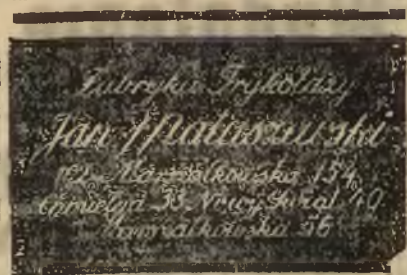 Fabryka Trykotaży
Jan Matuszewski
ul. Marszałkowska 154,
Chmielna 33, Nowy Świat 40
Marszałkowska 56